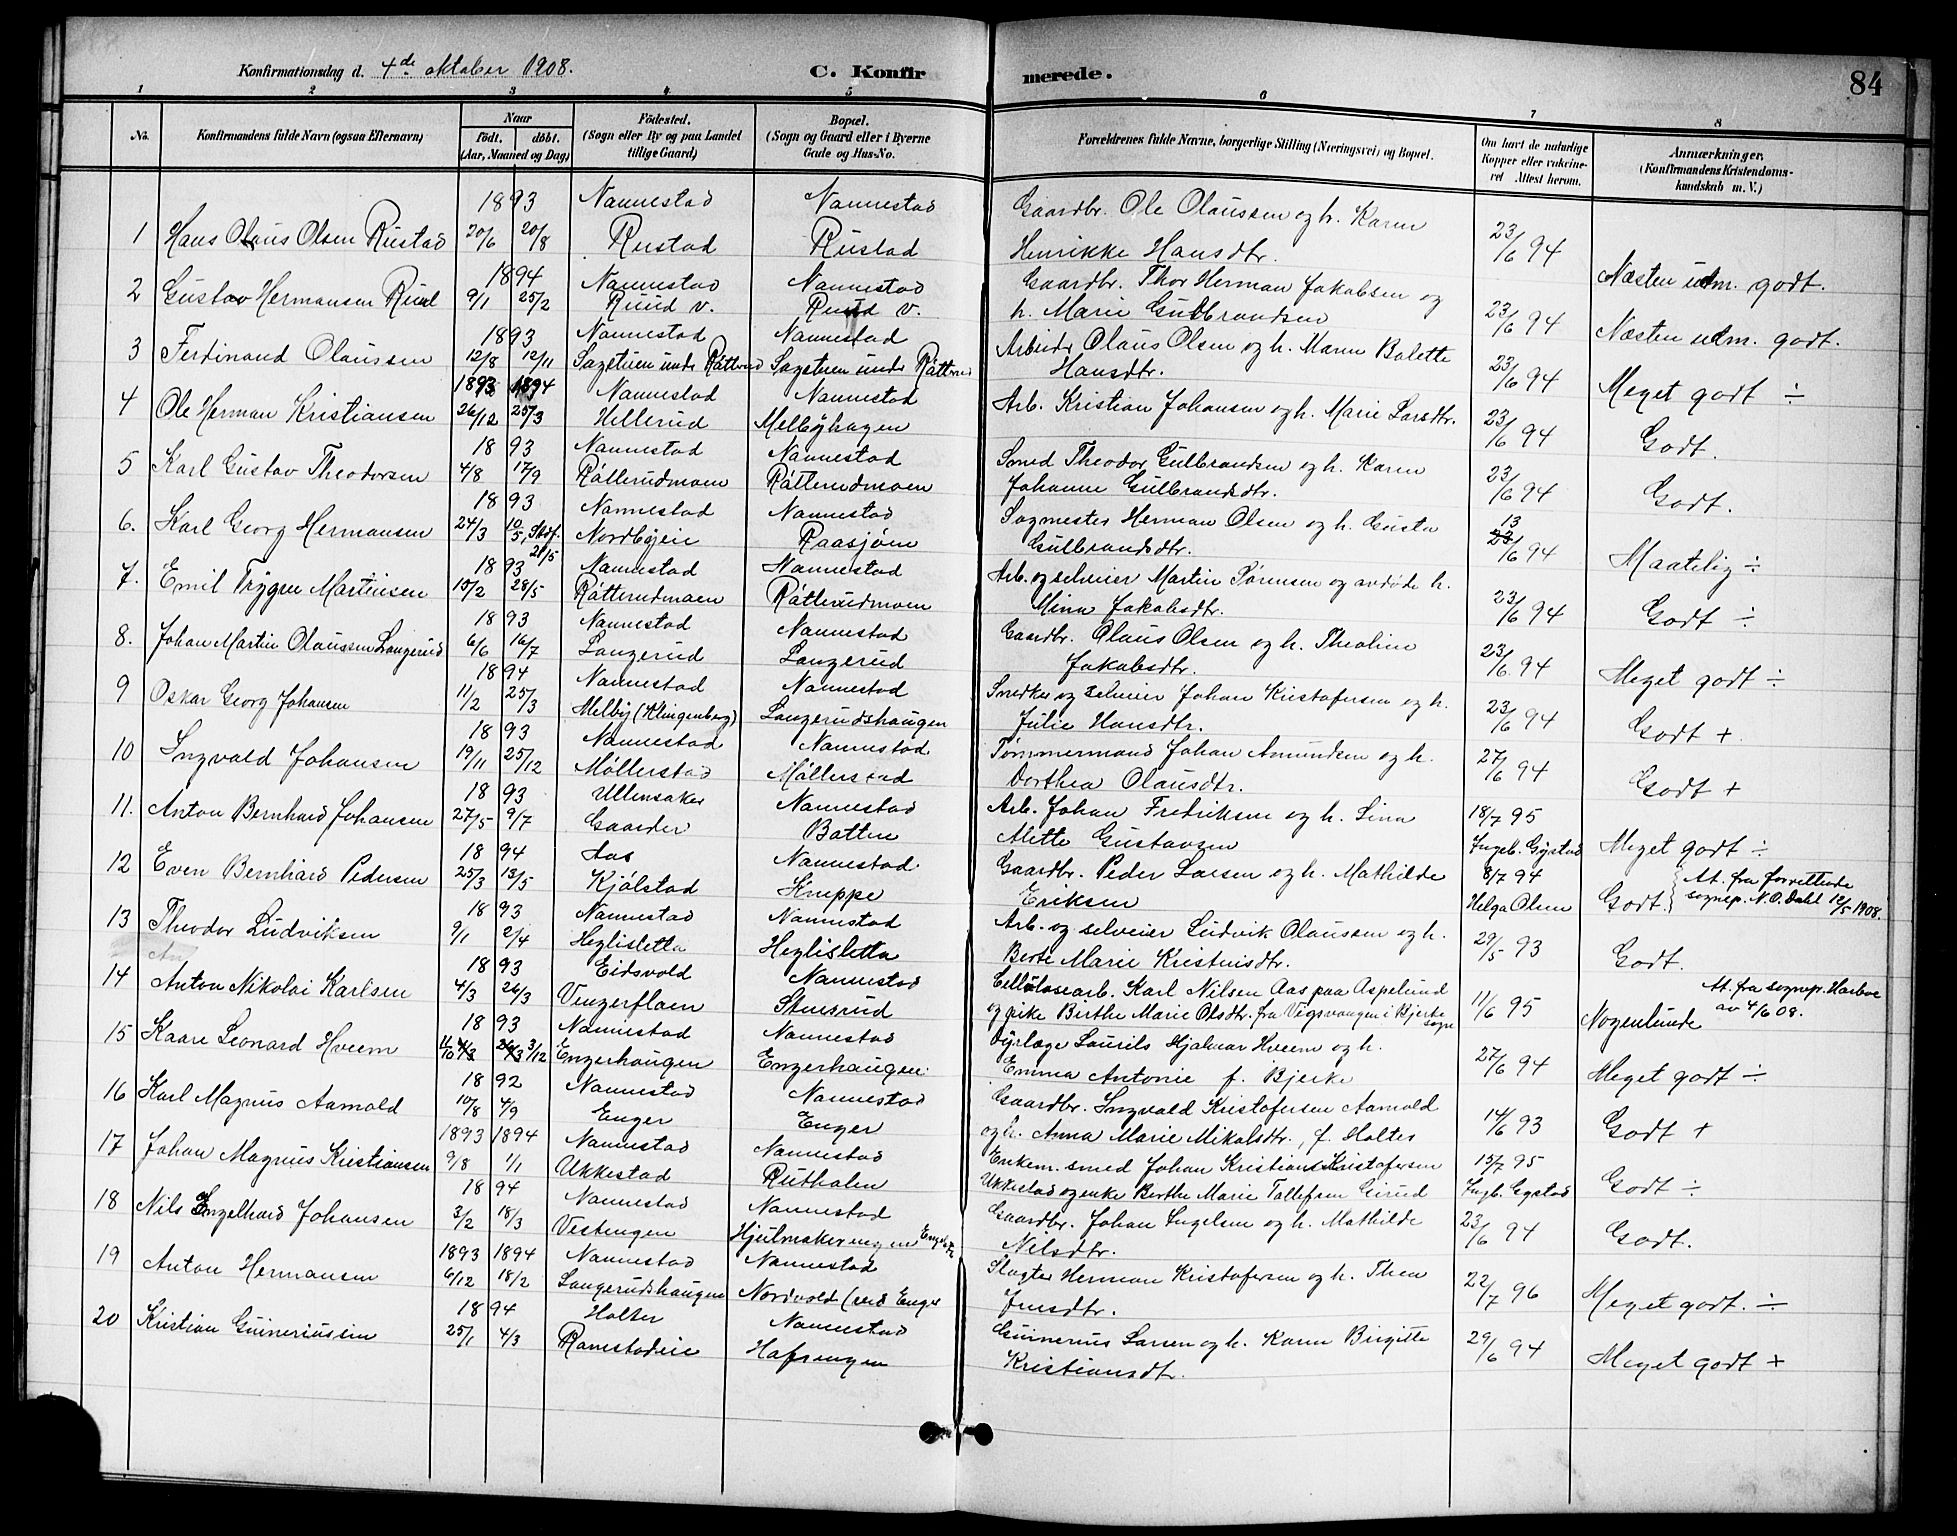 Konfirmationsdag d. 4de oktober 1908.
C. Konfirmerede.
84
1 2 3 4 5 6 7 8
No. Konfirmandens fulde Navn (ogsaa Efternavn) Naar født, døbt. (Aar, Maaned og Dag) Fødested. (Sogn eller By og paa Landet tillige Gaard) Bopæl. (Sogn og Gaard eller i Byerne Gade og Hus-No. Forældrenes fulde Navne, borgerlige Stilling (Næringsvei) og Bopæl. Om havt de naturlige Kopper eller vakcineret Attest herom. Anmærkninger. (Konfirmandens Kristendomskundskab m. V.)
1893 Nannestad Nannestad Gaardbr. Ole Olaussen og h. Karen
1 Hans Olaus Olsen Rustad 20/6 20/8 Rustad Rustad Henrikke Hansdtr. 23/6 94 Næsten udm. godt.
1894 Nannestad Nannestad Gaardbr. Thor Herman Jakobsen og
2 Gustav Hermansen Ruud 9/1 25/2 Ruud v. Ruud v. h. Marie Gulbrandsen 23/6 94 Næsten udm. godt.
1893 Nannestad Nannestad Arbeider Olaus Olsen og h. Maren Bolette
3 Ferdinand Olaussen 12/8 12/11 Sagstuen under Råtterud Sagstuen under Råtterud Hansdtr. 23/6 94 Meget godt ÷
1893 1894 Nannestad Nannestad Arb. Kristian Johansen og h. Marie Larsdtr.
4 Ole Herman Kristiansen 26/12 25/3 Hellerud Melbyhagen 23/6 94 Godt.
1893 Nannestad Nannestad Smed Theodor Gulbrandsen og h. Karen
5 Karl Gustav Theodorsen 4/8 17/9 Råtterudmoen Råtterudmoen Johanne Gulbrandsdtr. 23/6 94 Godt.
1893 Nannestad Nannestad Sagmester Herman Olsen og h. Gusta
6. Karl Georg Hermansen 24/3 10/5, Stadf. 21/5 Nordbyeie Raasjøen Gulbrandsdtr. 13 23/6 94 Maatelig ÷
1893 Nannestad Nannestad Arb. og selveier Martin Sørensen og avdøde h.
7. Emil Trygve Martinsen 15/2 28/5 Råtterudmoen Råtterudmoen Mina Jakobsdtr. 23/6 94 Godt ÷
1893 Nannestad Nannestad Gaardbr. Olaus Olsen og h. Theoline
8. Johan Martin Olaussen Langerud 6/6 16/7 Langerud Langerud Jakobsdtr. 23/6 94 Meget godt ÷
1894 Nannestad Nannestad Snedker og selveier Johan Kristofersen og h.
9 Oskar Georg Johansen 11/2 25/3 Melby (Klingenberg) Langerudshaugen Julie Hansdtr. 23/6 94 Godt +
1893 Nannestad Nannestad Tømmermand Johan Amundsen og h.
10 Ingvald Johansen 19/11 25/12 Møllerstad Møllerstad Dorthea Olausdtr. 27/6 94 Godt +
1893 Ullensaker Nannestad Arb. Johan Fredriksen og h. Lina 18/7 95
11. Anton Bernhard Johansen 27/5 9/7 Gaarder Batten Alette Gustavsen Ingeb. Gystad Meget godt ÷
1894 Aas Nannestad Gaardbr. Peder Larsen og h. Mathilde 8/7 94
12 Even Bernhard Pedersen 25/3 13/5 Kjølstad Kneppe Eriksen Helga Olsen Godt. At. fra forrettende sognep. N. O. Dahl 12/5 1908.
1893 Nannestad Nannestad Arb. og selveier Ludvik Olaussen og h.
13 Theodor Ludviksen 9/1 2/4 Heglisletta Heglisletta Berte Marie Kristensdtr. 29/5 93 Godt.
1893 Eidsvold Nannestad Celluløsearb. Karl Nilsen Aas paa Aspelund
14 Anton Nikolai Karlsen 4/3 26/3 Vengerflaen Stensrud og pike Birthe Marie Olsdtr. fra Vigsvangen i Bjerke sogn 11/6 95 Nogenlunde At. fra sognepr. Harboe av 4/6 08.
1893 Nannestad Nannestad Dyrlæge Laurits Hjalmar Hveem og h.
15 Kaare Leonard Hveem 11/10 4/3 26/3 3/12 Engerhaugen Engerhaugen Emma Antonie f. Bjerke 27/6 94 Meget godt ÷
1892 Nannestad Nannestad Gaardbr. Ingvald Kristofersen Aamold
16 Karl Magnus Aamold 10/8 4/9 Enger Enger og h. Anna Marie Mikalsdtr., f. Holter 14/6 93 Godt +
1893 1894 Nannestad Nannestad Enkem. smed Johan Kristian Kristofersen 15/7 95
17 Johan Magnus Kristiansen 9/8 1/1 Ukkestad Ruthalen Ukkestad og enke Berthe Marie Tollefsen Girud Ingb. Gystad Godt ÷
1894 Nannestad Nannestad Gaardbr. Johan Engelsen og h. Mathilde
18 Nils Engelhard Johansen 3/2 18/3 Vestengen Hjulmakerengen Nilsdtr. 23/6 94 Godt.
1893 1894 Nannestad Nannestad Slagter Herman Kristofersen og h. Thea
19 Anton Hermansen 6/12 18/2 Langerudshaugen Nordvold (ved Enger Jensdtr. 22/7 96 Meget godt. ÷
1894 Holter Nannestad Guinerius Larsen og h. Karen Birgitte
20 Kristian Guineriussen 25/1 4/3 Ranestadeie Hafsengen Kristiansdtr. 29/6 94 Meget godt +